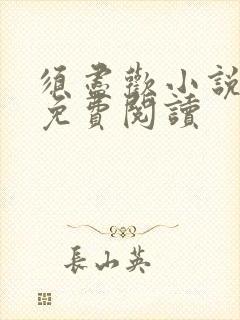 須盡歡小說
免費閱讀
長山英